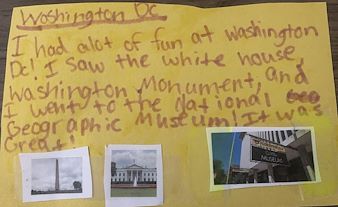 Washington Dc
I had alot of fun at washington
Dc! I saw the white house,
Washington Monument, and
I went to the National
Geographic Museum! It was
Great!
MUSEUM